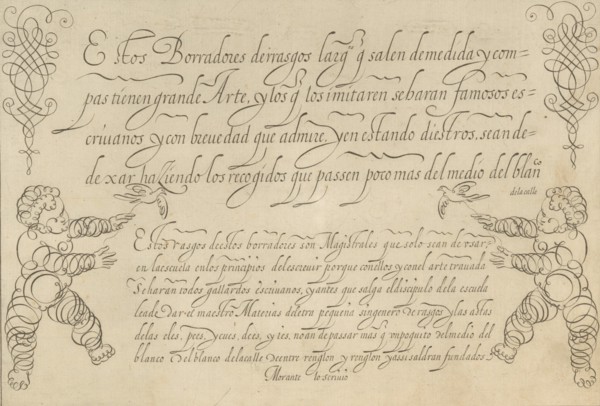 Estos Borradores de rrasgos largos q̃ salen de medida y com=
pas tienen grande Arte, y los q̃ los imitaren se haran famosos es=
criuanos y con breuedad que admire. Y en estando diestros, se an de=
dexar haziendo los recogidos que passen poco mas del medio del blanco
de la calle
Estos rasgos destos borradores son Magistrales que solo se an de vsar
en la escuela en los principios del escriuir porque con ellos y con el arte trauada
Se haran todos gallardos escriuanos, y antes que salga el discipulo de la escuela
le a de dar el maestro Materias de letra pequeña sin genero de rasgos y las astas
de las eles, pees, y cues, dees, y ies, no an de passar mas q̃ vn poquito del medio del
blanco del blanco de la calle de entre renglon y renglon y assi saldran fundados.
Morante lo scriuio